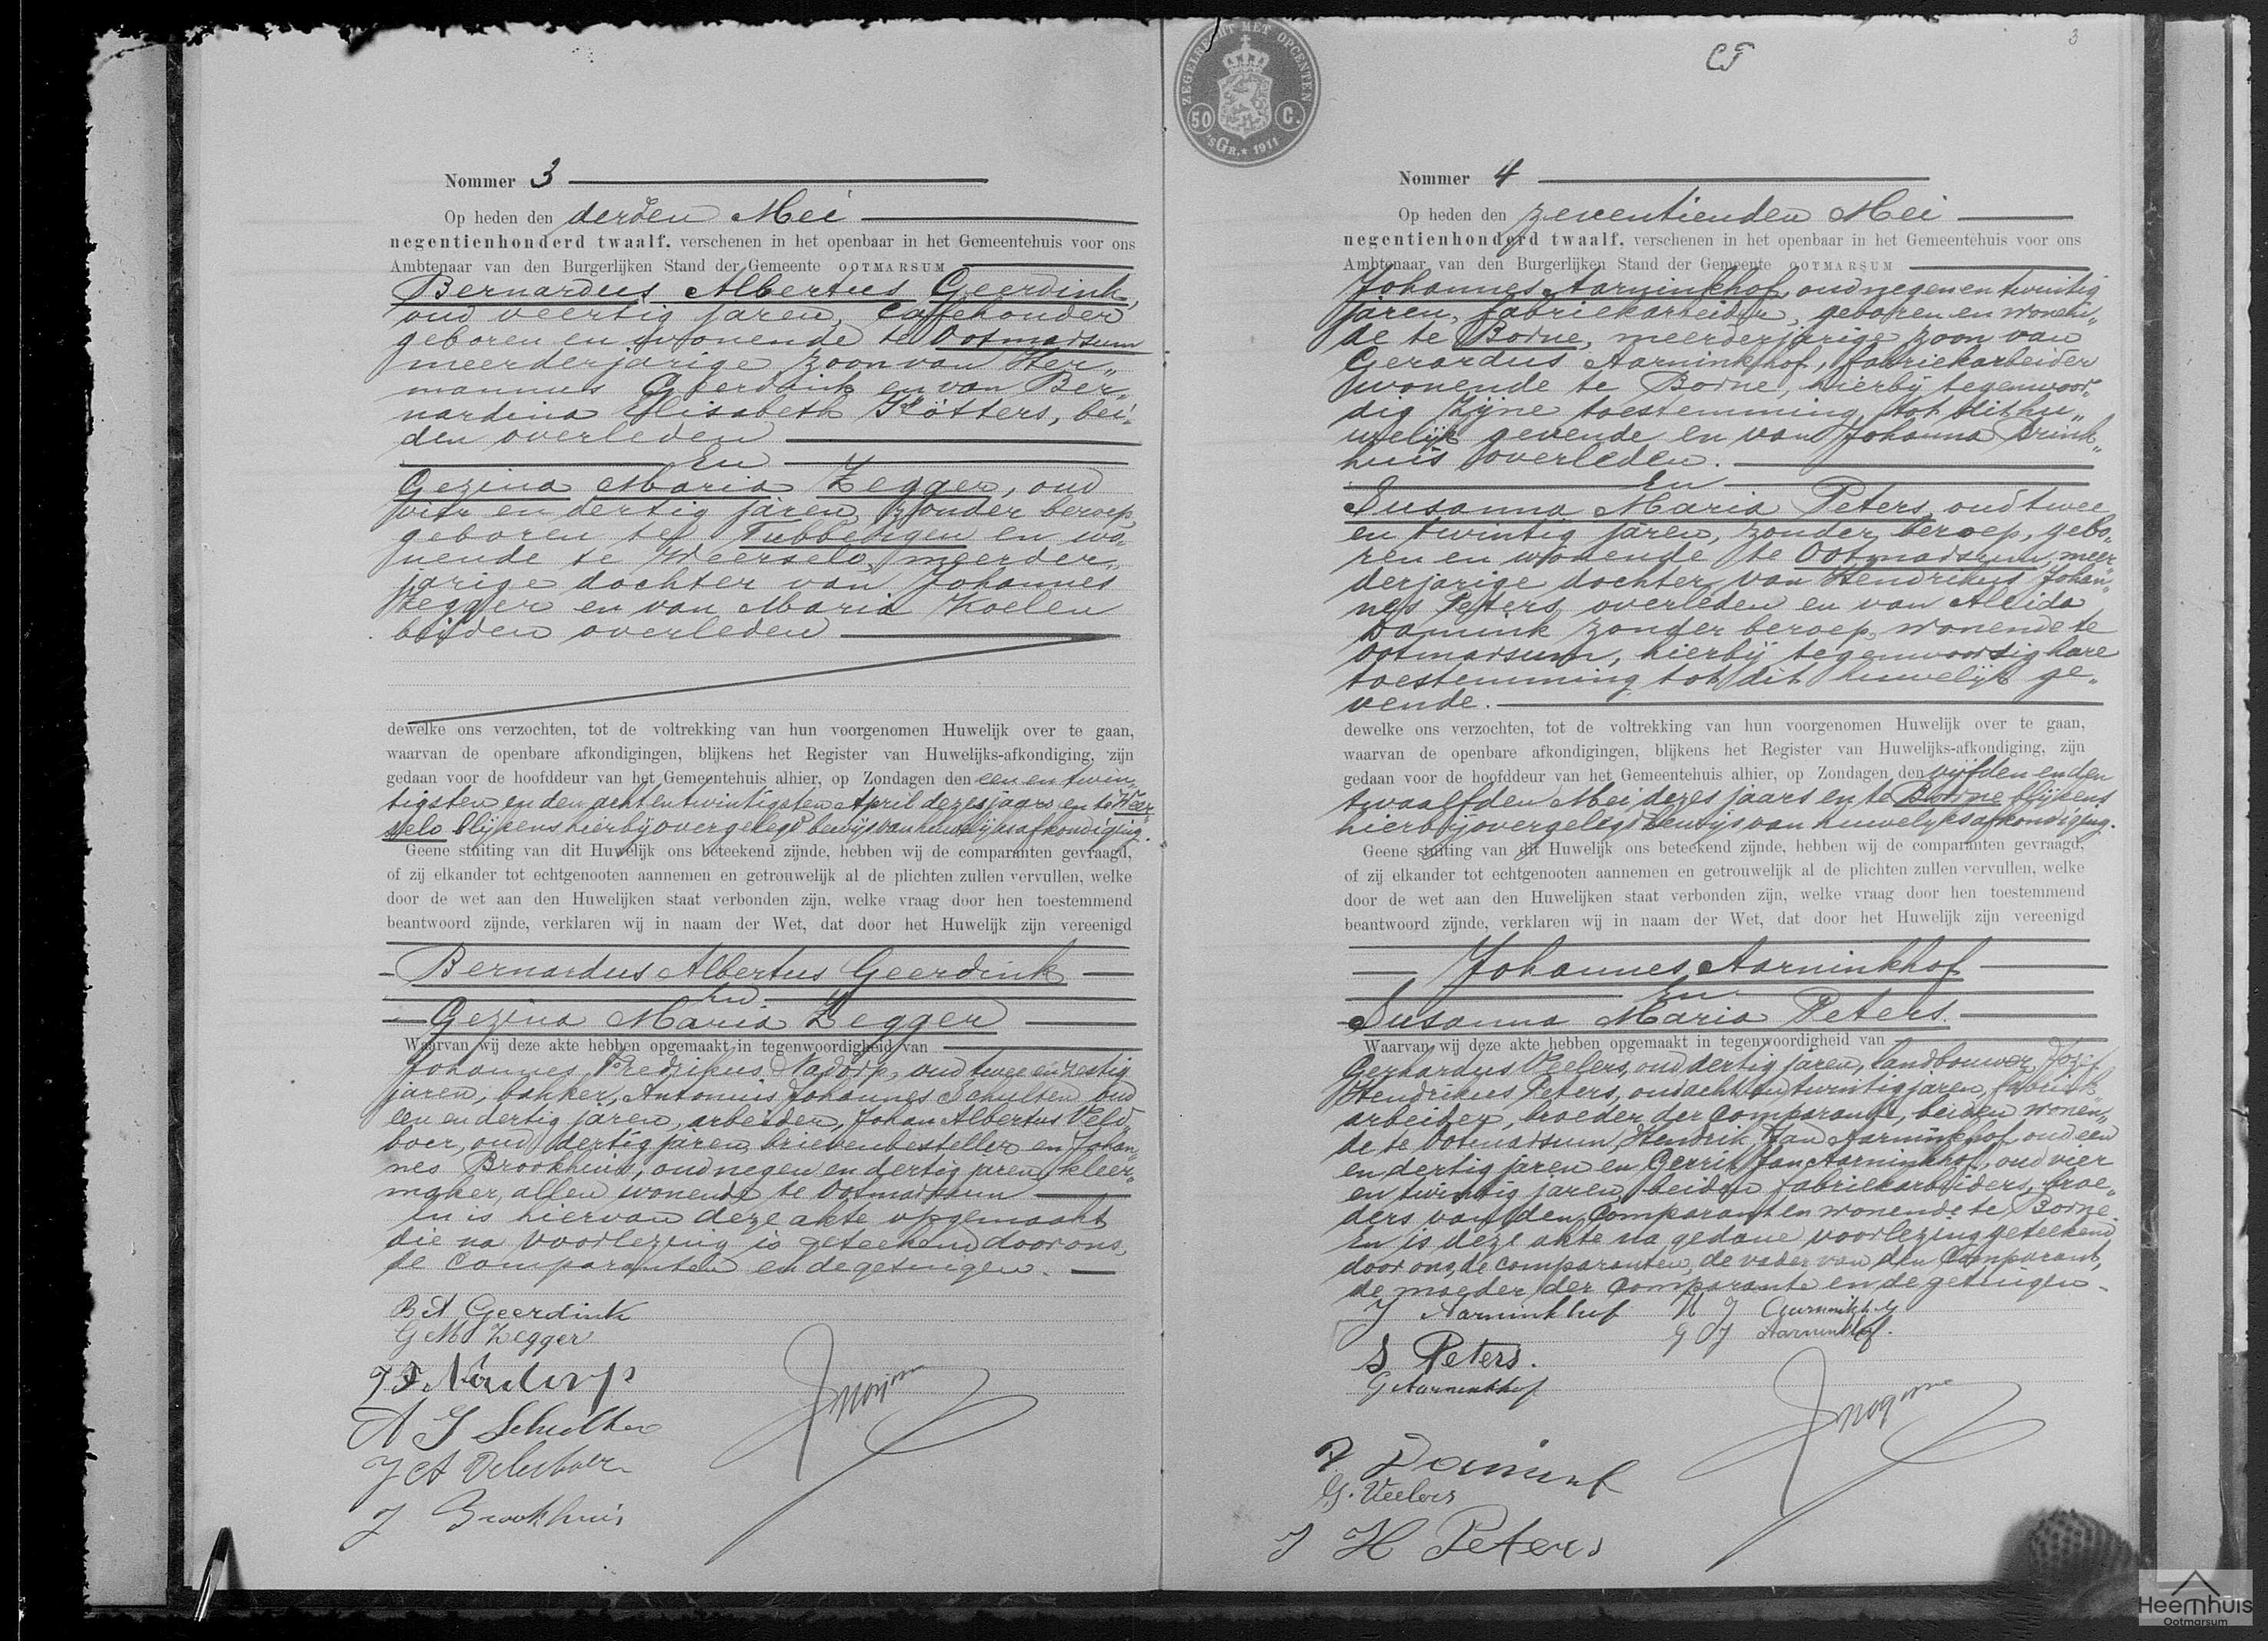 Nommer 3
Op heden den derden Mei
negentienhonderd twaalf, verschenen in het openbaar in het Gemeentehuis voor ons
Ambtenaar van den Burgerlijken Stand der Gemeente OOTMARSUM
Bernardus Albertus Geerdink,
oud veertig jaren, caffehouder
geboren en wonende te Ootmarsum
meerderjarige zoon van Her„
mannus Geerdink en van Ber„
nardina Elisabeth Kötters, bei„
den overleden
En
Gezina Maria Zegger, oud
vier en dertig jaren, zonder beroep,
geboren te Tubbergen en wo„
nende te Weerselo, meerder„
jarige dochter van Johannes
Zegger en van Maria Koelen
beiden overleden
dewelke ons verzochten, tot de voltrekking van hun voorgenomen Huwelijk over te gaan,
waarvan de openbare afkondigingen, blijkens het Register van Huwelijks-afkondiging, zijn
gedaan voor de hoofddeur van het Gemeentehuis alhier, op Zondagen den een en twin„
tigsten en den achtentwintigsten April dezes jaars en te Weer„
selo blijkens hierbij overgelegd bewijs van huwelijksafkondiging.
Geene stuiting van dit Huwelijk ons beteekend zijnde, hebben wij de comparanten gevraagd,
of zij elkander tot echtgenooten aannemen en getrouwelijk al de plichten zullen vervullen, welke
door de wet aan den Huwelijken staat verbonden zijn, welke vraag door hen toestemmend
beantwoord zijnde, verklaren wij in naam der Wet, dat door het Huwelijk zijn vereenigd
Bernardus Albertus Geerdink
en
Gezina Maria Zegger
Waarvan wij deze akte hebben opgemaakt in tegenwoordigheid van
Johannes Fredrikus Nadorp, oud twee en zestig
jaren, bakker, Antonius Johannes Schulten oud
een en dertig jaren, arbeider, Johan Albertus Veld
boer, oud dertig jaren, brievenbesteller en Johan„
nes Brookhuis, oud negen en dertig jaren, kleer„
maker, allen wonende te Ootmarsum
En is hiervan deze akte opgemaakt
die na voorlezing is geteekend door ons,
de comparanten en de getuigen.
B A Geerdink
G M Zegger
J F Nadorp
A J Schulten
J A Veldboer
J Brookhuis
50 C.
ZEGELRECHT MET OPCENTEN
'sGR. 1911
3
Nommer 4
Op heden den zeventienden Mei
negentienhonderd twaalf, verschenen in het openbaar in het Gemeentehuis voor ons
Ambtenaar van den Burgerlijken Stand der Gemeente OOTMARSUM
Johannes Aarninkhof, oud negen en twintig
jaren, fabriekarbeider, geboren en wonen„
de te Borne, meerderjarige zoon van
Gerardus Aarninkhof, fabriekarbeider
wonende te Borne, hierbij tegenwoor„
dig zijne toestemming tot dit hu„
welijk gevende en van Johanna Brink„
huis overleden.
En
Susanna Maria Peters, oud twee
en twintig jaren, zonder beroep, gebo„
ren en wonende te Ootmarsum, meer„
derjarige dochter van Hendrikus Johan„
nes Peters, overleden en van Aleida
Damink zonder beroep, wonende te
Ootmarsum, hierbij tegenwoordig hare
toestemming tot dit huwelijk ge„
vende.
dewelke ons verzochten, tot de voltrekking van hun voorgenomen Huwelijk over te gaan,
waarvan de openbare afkondigingen, blijkens het Register van Huwelijks-afkondiging, zijn
gedaan voor de hoofddeur van het Gemeentehuis alhier, op Zondagen den vijfden en den
twaalfden Mei dezes jaars en te Borne blijkens
hierbij overgelegd bewijs van huwelijksafkondiging.
Geene stuiting van dit Huwelijk ons beteekend zijnde, hebben wij de comparanten gevraagd,
of zij elkander tot echtgenooten aannemen en getrouwelijk al de plichten zullen vervullen, welke
door de wet aan den Huwelijken staat verbonden zijn, welke vraag door hen toestemmend
beantwoord zijnde, verklaren wij in naam der Wet, dat door het Huwelijk zijn vereenigd
Johannes Aarninkhof
En
Susanna Maria Peters.
Waarvan wij deze akte hebben opgemaakt in tegenwoordigheid van
Gerhardus Veelers, oud dertig jaren, landbouwer, Jozef
Hendrikus Peters, oud acht en twintig jaren, fabriek„
arbeider, broeder der comparante, beiden wonen„
de te Ootmarsum, Hendrik Jan Aarninkhof, oud een
en dertig jaren en Gerrit Jan Aarninkhof, oud vier
en twintig jaren, beiden fabriekarbeiders, broe„
ders van den Comparant en wonende te Borne.
En is deze akte na gedane voorlezing geteekend
door ons, de comparanten, de vader van den Comparant,
de moeder der comparante en de getuigen
J Aarninkhof H J Aarninkhof
G J Aarninkhof.
S Peters.
G Aarninkhof
A Damink
G. Veelers
J H Peters
Heemhuis
Ootmarsum